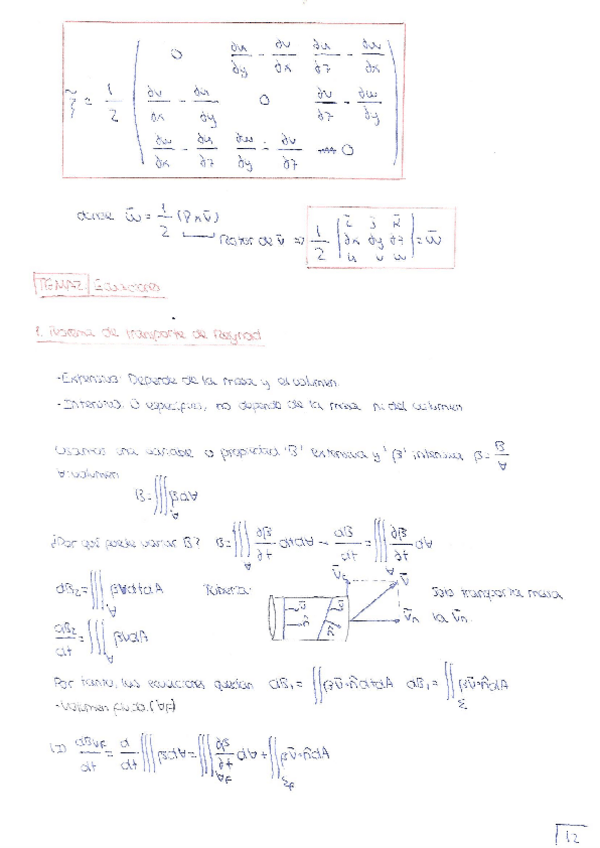 ξ̃ = 1/2 ( 0   ∂u/∂y - ∂v/∂x   ∂u/∂z - ∂w/∂x
∂v/∂x - ∂u/∂y   0   ∂v/∂z - ∂w/∂y
∂w/∂x - ∂u/∂z   ∂w/∂y - ∂v/∂z   0 )
donde w̄ = 1/2 (∇∧v̄)
Rotor de v̄ => 1/2 | ī j̄ k̄ | = w̄
∂x ∂y ∂z
u v w
TEMA 2 Ecuaciones
1. Teorema de transporte de Reynold
-Extensiva: Depende de la masa y el volumen.
-Intensiva: O específica, no depende de la masa ni del volumen
Usamos una variable o propiedad 'B' extensiva y 'β' intensiva β = B/∀
∀: volumen
B = ∭∀ β d∀
¿Por qué puede variar B? B = ∭∀ ∂β/∂t dt d∀ → dB/dt = ∭∀ ∂β/∂t d∀
dB₂ = ∭∀ βv dt dA   Tubería:   v̄t   v̄   Solo transporta masa
v̄n   la v̄n
dB₂/dt = ∭∀ βv dA
Por tanto, las ecuaciones quedan dB₁ = ∬ βv̄·n̄ dt dA   dB₁ = ∬Σ βv̄·n̄ dA
-Volumen fluido (∀F)
(I) dB∀F/dt = d/dt ∭ β d∀ = ∭∀F ∂β/∂t d∀ + ∬ΣF βv̄·n̄ dA
12